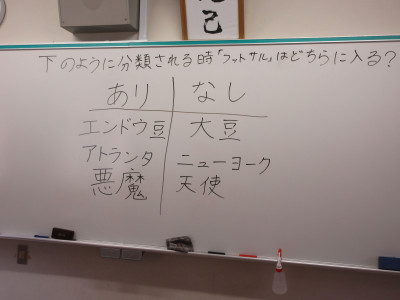 己
下のように分類される時「フットサル」はどちらに入る?
あり なし
エンドウ豆 大豆
アトランタ ニューヨーク
悪魔 天使